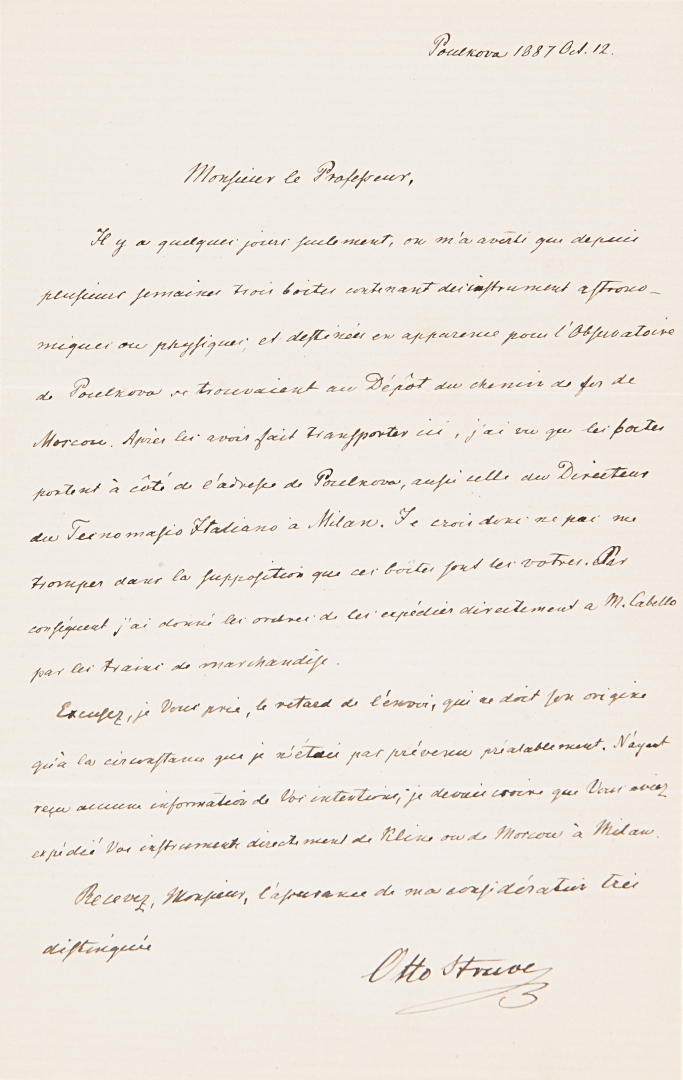 Poulkova 1887 Oct. 12.
Monsieur le Professeur,
Il y a quelques jours seulement, on m'a averti que depuis
plusieurs semaines trois boites contenant des instrument astrono-
miques ou physiques, et destinées en apparence pour l'Observatoire
de Poulkova se trouvaient au Dépôt du chemin de fer de
Moscou. Après les avoir fait transporter ici, j'ai vu que les boites
portent à côté de l'adresse de Poulkova, aussi celle du Directeur
du Tecnomasio Italiano à Milan. Je crois donc ne pas me
tromper dans la supposition que ces boites sont les votres. Par
conséquent j'ai donné les ordres de les expédier directement a M. Cabello
par les trains de marchandise.
Excusez, je Vous prie, le retard de l'envoi, qui ne doit son origine
qu'à la circonstance que je n'étais pas prévenu préalablement. N'ayant
reçu aucune information de Vos intentions, je devais croire que Vous aviez
expédié Vos instruments directement de Kline ou de Moscou à Milan.
Recevez, Monsieur, l'assurance de ma considération très
distinguée
Otto Struve